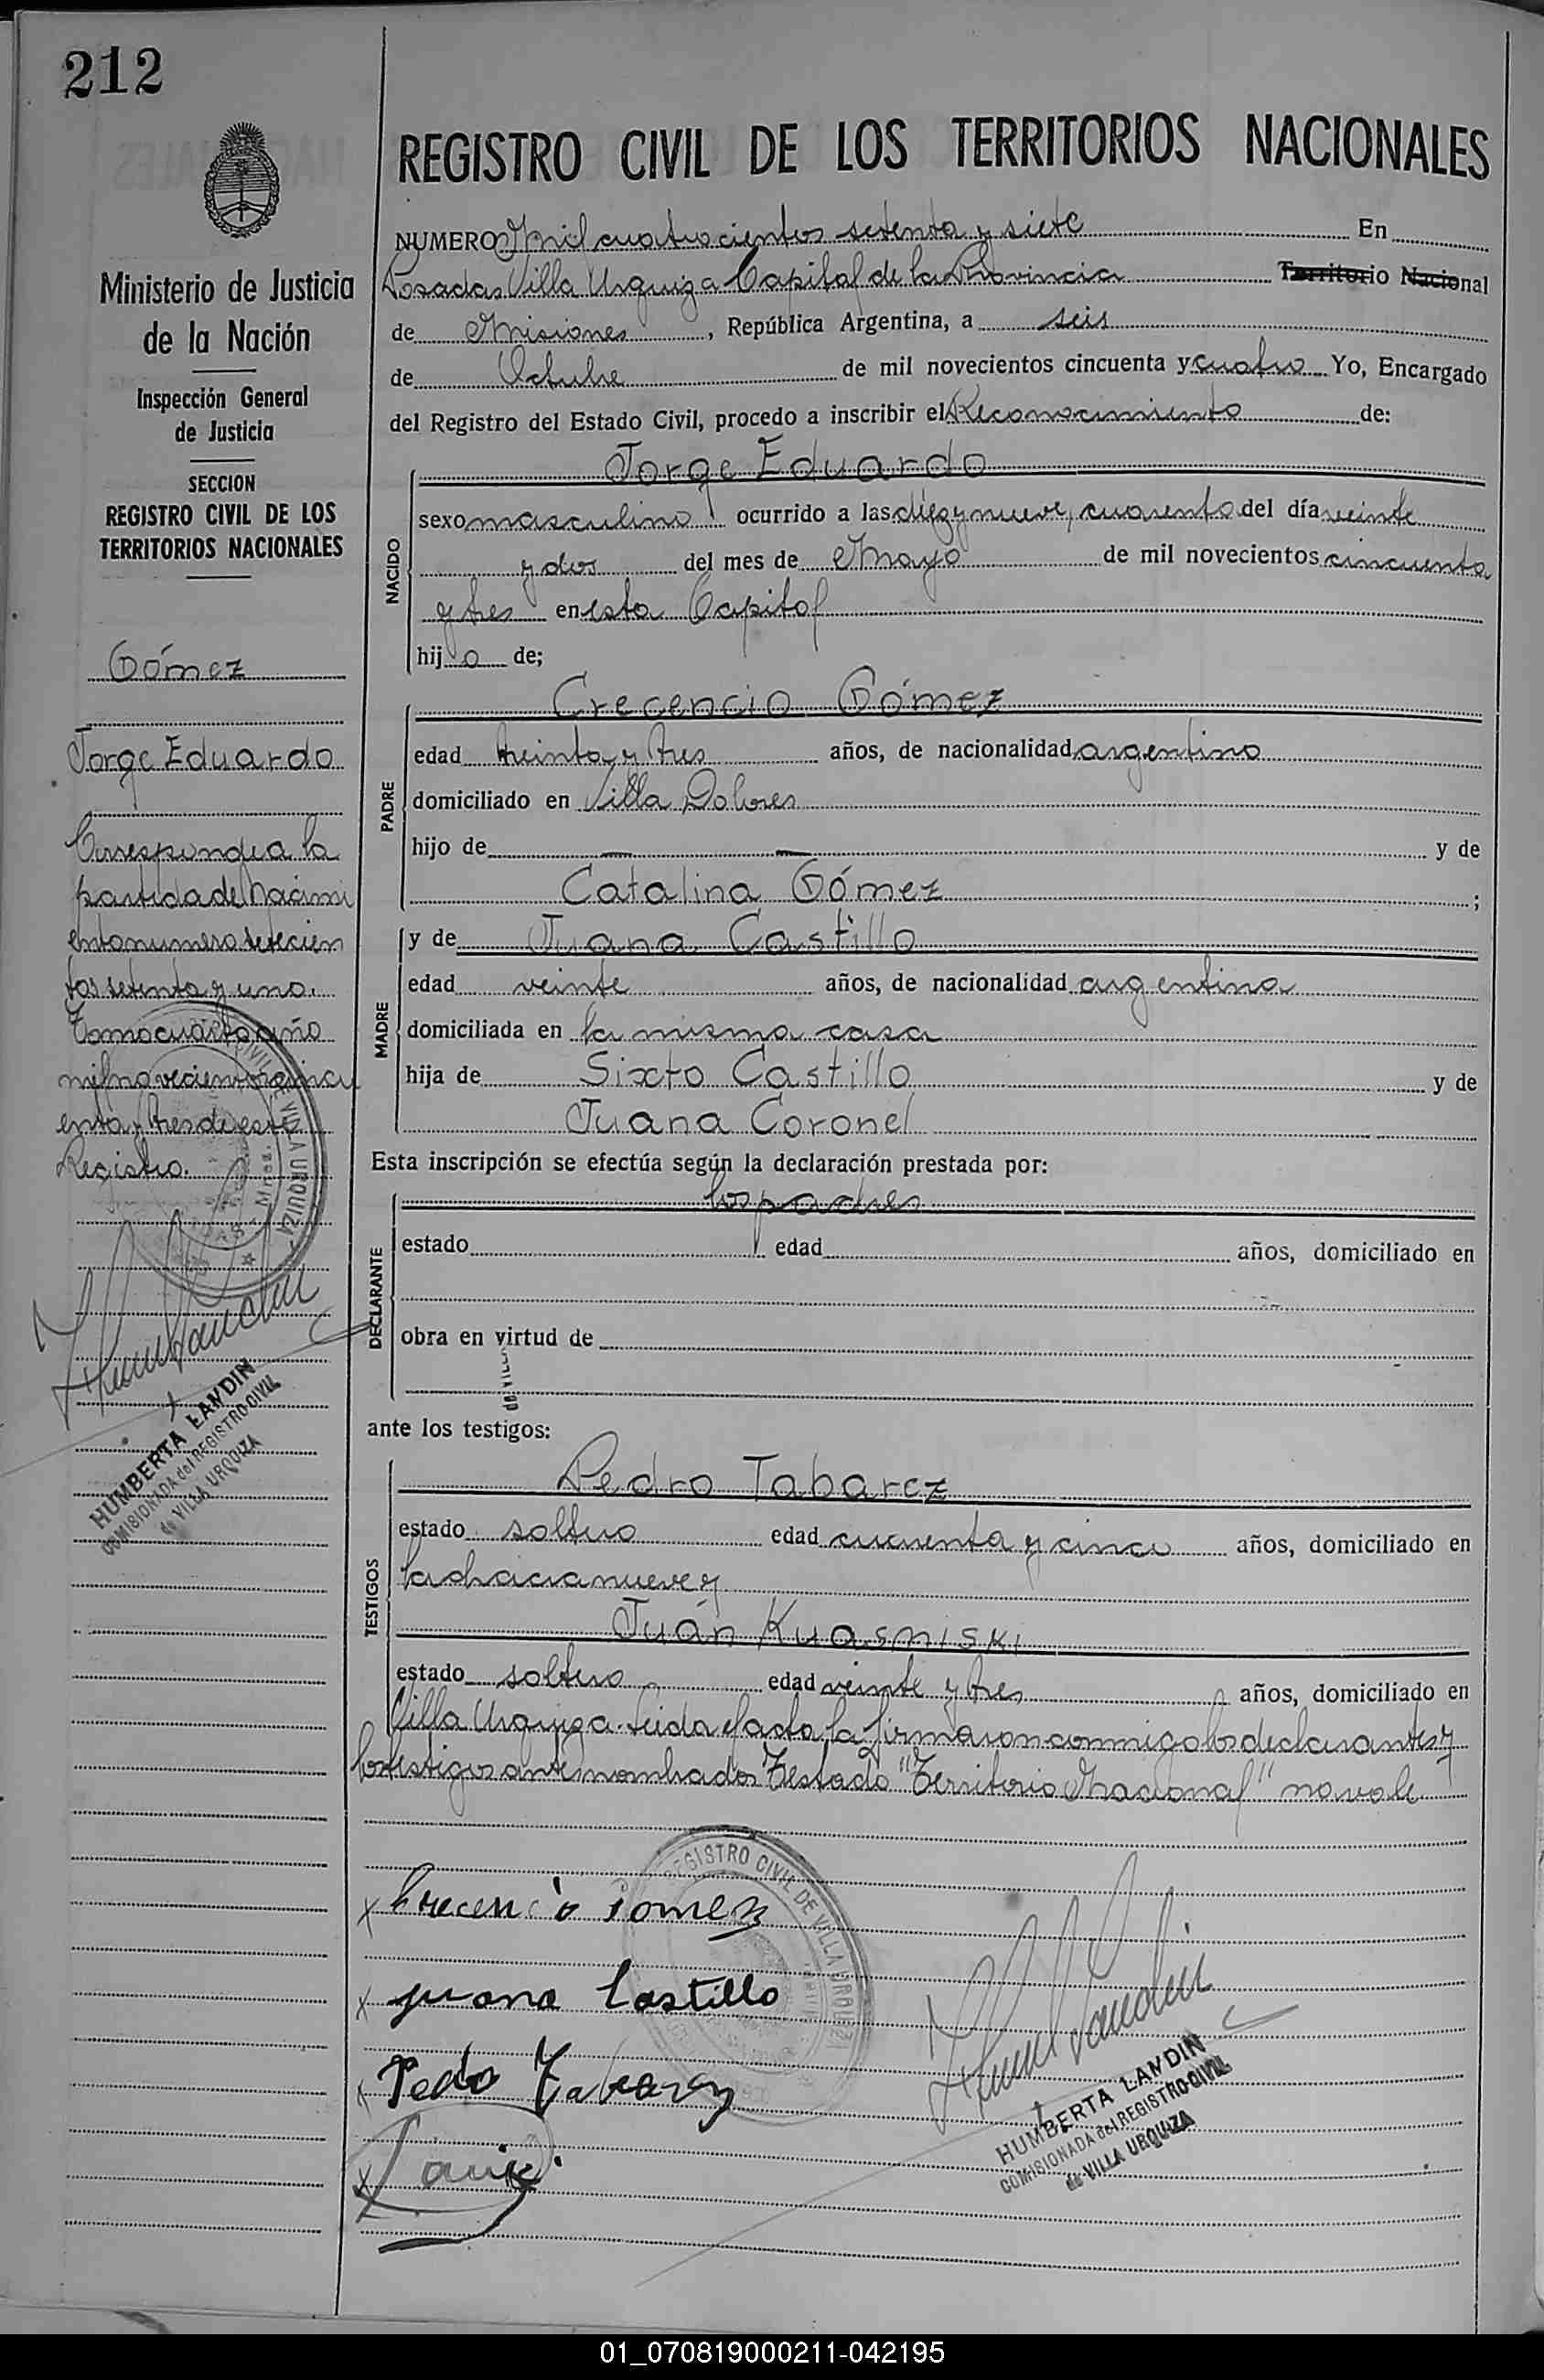 212
Ministerio de Justicia
de la Nación
Inspección General
de Justicia
SECCION
REGISTRO CIVIL DE LOS
TERRITORIOS NACIONALES
Gómez
Jorge Eduardo
Corresponde a la
partida de Nacimi
ento numero setecien
tos setenta y uno.
Tomo cuarto año
mil novecientos cincu
enta y tres de este
Registro.
HUMBERTA LANDIN
COMISIONADA del REGISTRO CIVIL
de VILLA URQUIZA
REGISTRO CIVIL DE LOS TERRITORIOS NACIONALES
NUMERO Mil cuatrocientos setenta y siete En
Posadas Villa Urquiza Capital de la Provincia Territorio Nacional
de Misiones, República Argentina, a seis
de Octubre de mil novecientos cincuenta y cuatro Yo, Encargado
del Registro del Estado Civil, procedo a inscribir el Reconocimiento de:
NACIDO
Jorge Eduardo
sexo masculino ocurrido a las diez y nueve, cuarenta del día veinte
y dos del mes de Mayo de mil novecientos cincuenta
y tres en esta Capital
hijo de;
PADRE
Crecencio Gómez
edad treinta y tres años, de nacionalidad argentino
domiciliado en Villa Dolores
hijo de — — y de
Catalina Gómez ;
MADRE
y de Juana Castillo
edad veinte años, de nacionalidad argentina
domiciliada en la misma casa
hija de Sixto Castillo y de
Juana Coronel
Esta inscripción se efectúa según la declaración prestada por:
DECLARANTE
los padres
estado edad años, domiciliado en
obra en virtud de
ante los testigos:
TESTIGOS
Pedro Tabarez
estado soltero edad cuarenta y cinco años, domiciliado en
la chacra nueve y
Juán Kuasniski
estado soltero edad veinte y tres años, domiciliado en
Villa Urquiza. Leida el acta la firmaron conmigo los declarantes y
los testigos antes nombrados Testado "Territorio Nacional" no vale
REGISTRO CIVIL DE VILLA URQUIZA
Crecencio Gomez
juana Castillo
Pedro Tabarez
HUMBERTA LANDIN
COMISIONADA del REGISTRO CIVIL
de VILLA URQUIZA
01_070819000211-042195